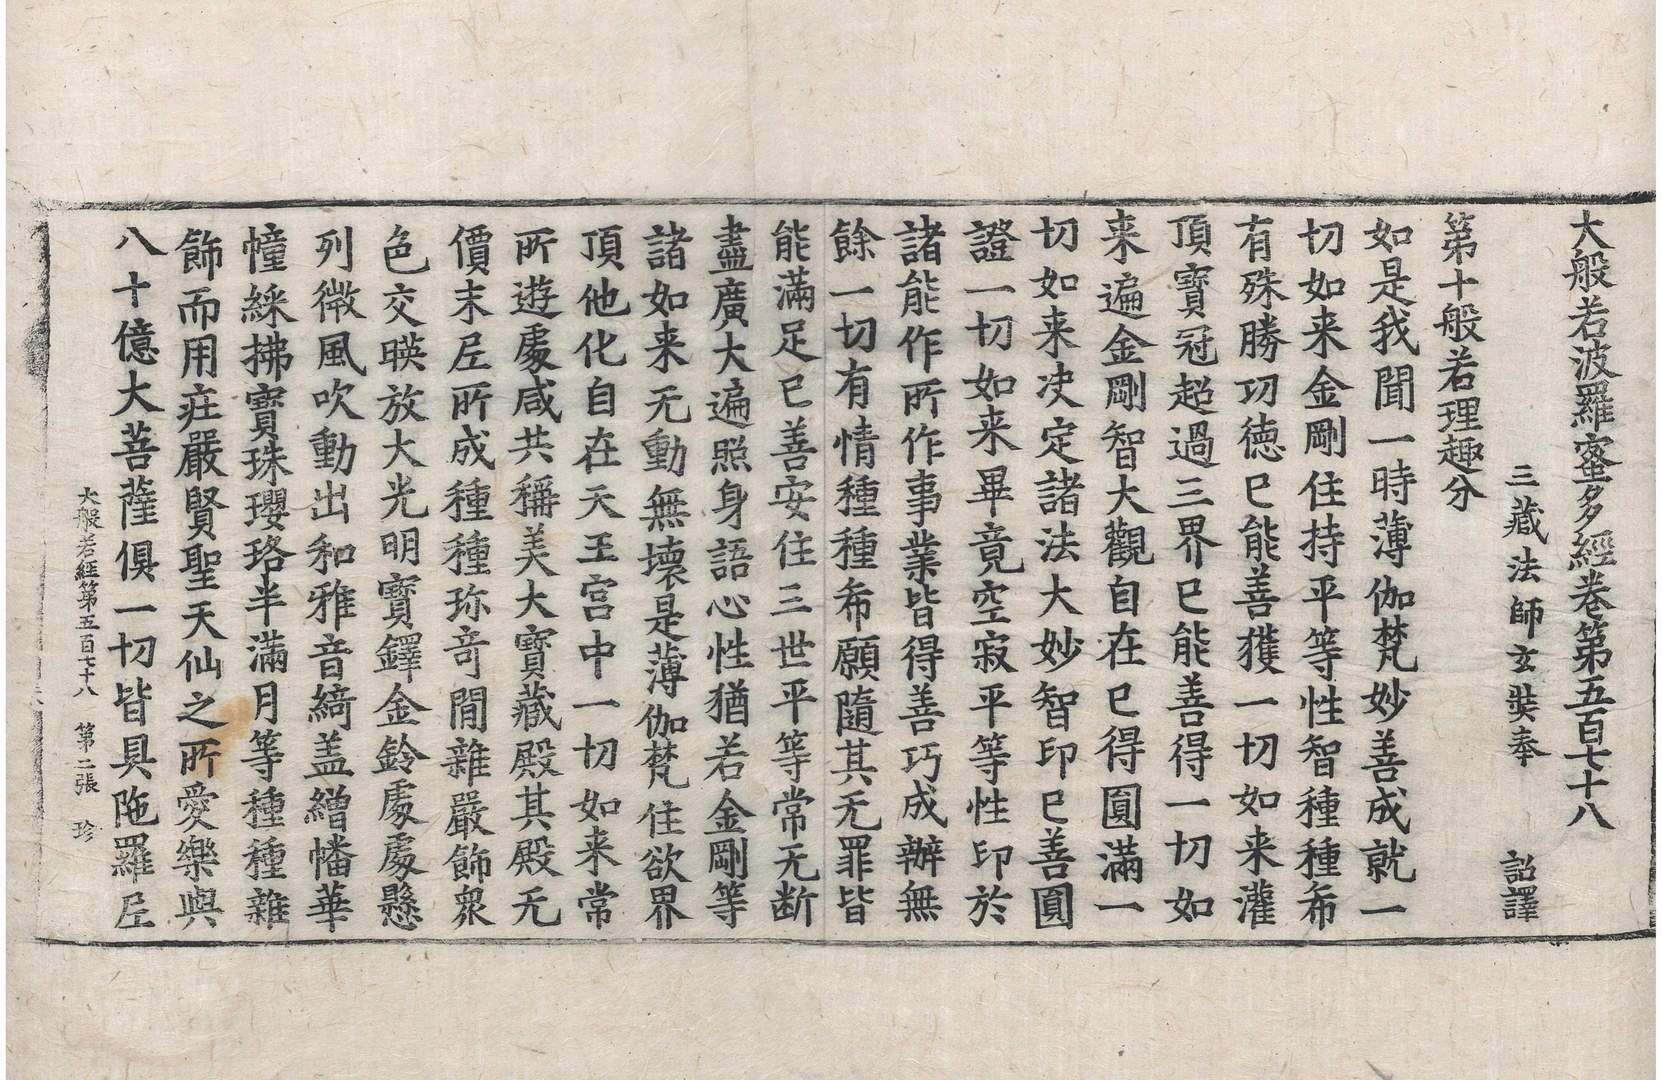 大般若波羅蜜多經卷第五百七十八
三藏法師玄奘奉　詔譯
第十般若理趣分
如是我聞一時薄伽梵妙善成就一
切如来金剛住持平等性智種種希
有殊勝功德已能善獲一切如来灌
頂寶冠超過三界已能善得一切如
来遍金剛智大觀自在已得圓滿一
切如来决定諸法大妙智印已善圓
證一切如来畢竟空寂平等性印於
諸能作所作事業皆得善巧成辦無
餘一切有情種種希願隨其无罪皆
能滿足已善安住三世平等常无断
盡廣大遍照身語心性猶若金剛等
諸如来无動無壞是薄伽梵住欲界
頂他化自在天王宮中一切如来常
所遊處咸共稱美大寶藏殿其殿无
價末尼所成種種珎竒間雜嚴飾衆
色交暎放大光明寶鐸金鈴處處懸
列微風吹動出和雅音綺盖繒幡華
幢綵拂寶珠瓔珞半滿月等種種雜
飾而用庄嚴賢聖天仙之所愛樂與
八十億大菩薩俱一切皆具陁羅尼
大般若経第五百七十八　第二張　珎